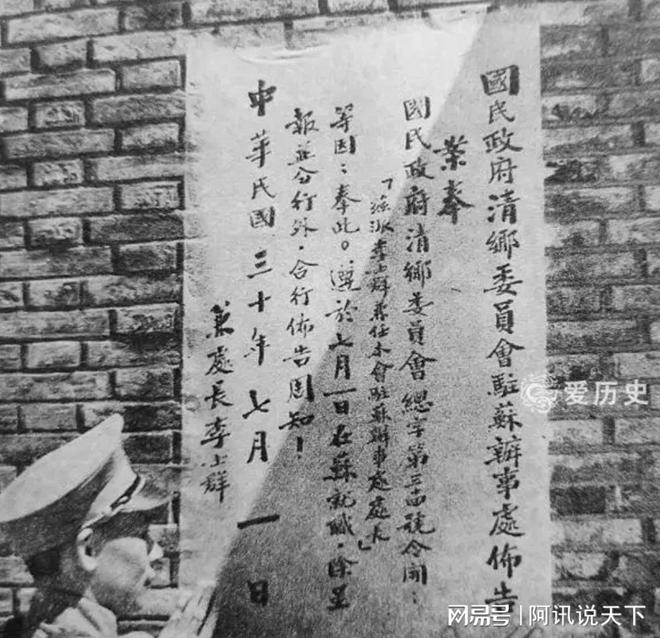 國民政府清鄉委員會駐蘇辦事處佈告
案奉
國民政府清鄉委員會總字第三四號令開：
「茲派李士群兼任本會駐蘇辦事處處長」
等因；奉此。遵於七月一日在蘇就職，除呈
報並分行外，合行佈告周知！
中華民國三十年七月一日
兼處長李士群
爱历史
网易号 | 阿讯说天下